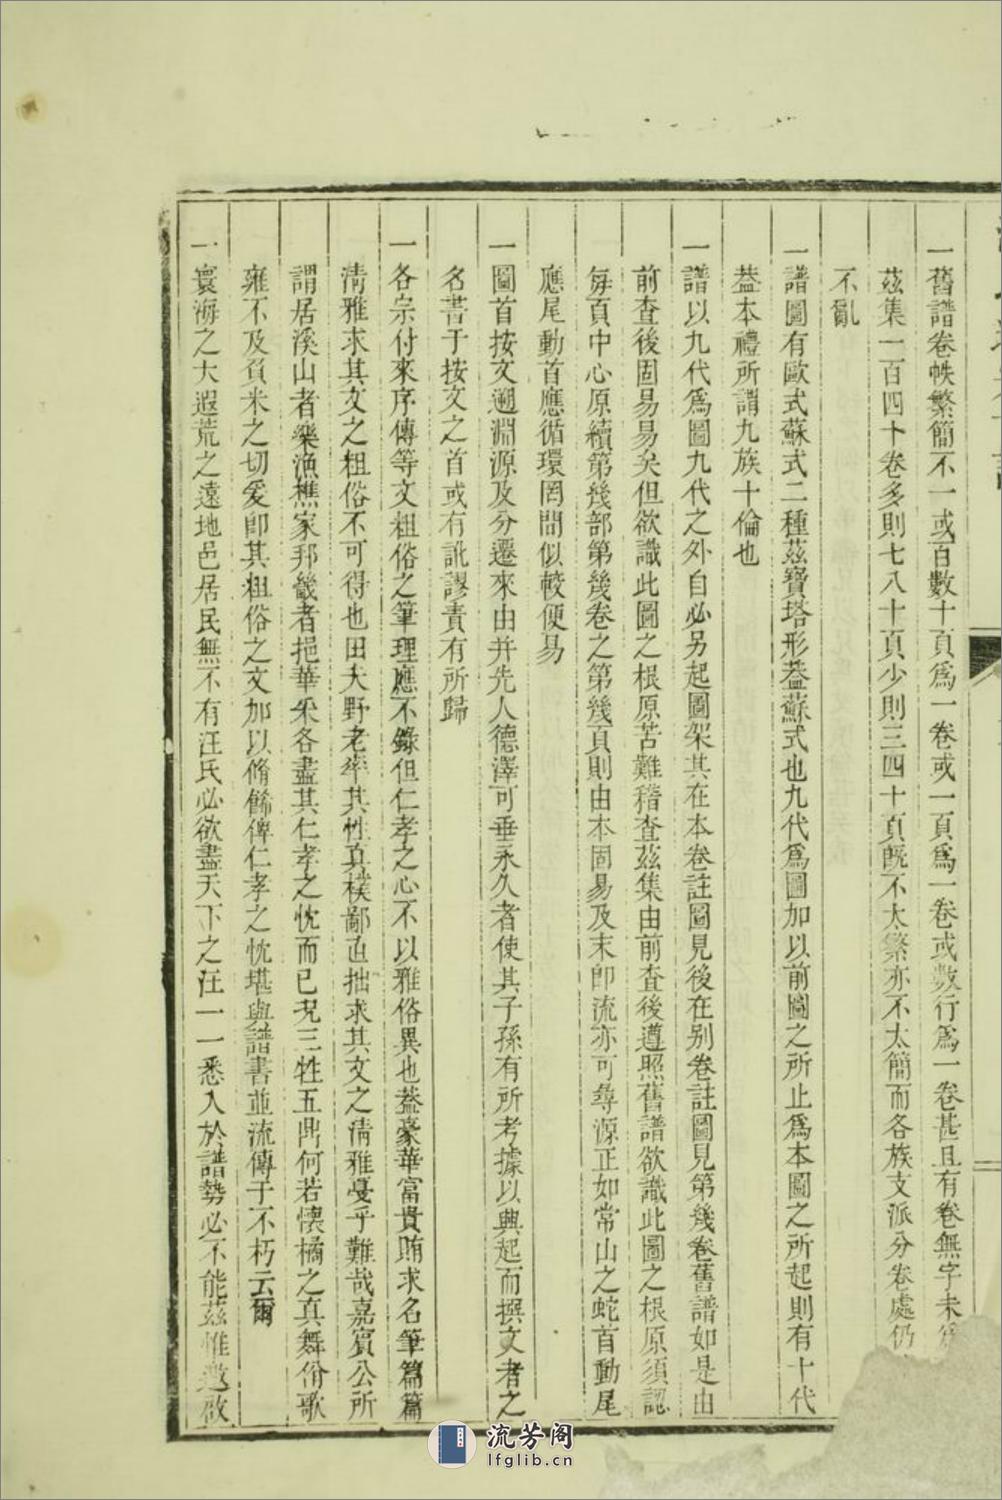 一舊譜卷帙繁簡不一或百數十頁爲一卷或一頁爲一卷或數行爲一卷甚且有卷無字未
茲集一百四十卷多則七八十頁少則三四十頁旣不太繁亦不太簡而各族支派分卷處仍
不亂
一譜圖有歐式蘇式二種茲寶塔形葢蘇式也九代爲圖加以前圖之所止爲本圖之所起則有十代
葢本禮所謂九族十倫也
一譜以九代爲圖九代之外自必另起圖架其在本卷註圖見後在别卷註圖見第幾卷舊譜如是由
前查後固易易矣但欲識此圖之根原苦難稽查茲集由前查後遵照舊譜欲識此圖之根原須認
每頁中心原續第幾部第幾卷之第幾頁則由本固易及末卽流亦可尋源正如常山之蛇首動尾
應尾動首應循環罔間似較便易
一圖首按文遡淵源及分遷來由并先人德澤可垂永久者使其子孫有所考據以興起而撰文者之
名書于按文之首或有訛謬責有所歸
一各宗付來序傳等文粗俗之筆理應不錄但仁孝之心不以雅俗異也葢豪華富貴賄求名筆篇篇
淸雅求其文之粗俗不可得也田夫野老率其性真樸鄙直拙求其文之淸雅戞乎難哉嘉賓公所
謂居溪山者樂漁樵家邦畿者挹華采各盡其仁孝之忱而已況三牲五鼎何若懷橘之真舞佾歌
雍不及負米之切爰卽其粗俗之文加以脩餙俾仁孝之忱堪與譜書並流傳于不朽云爾
一寰海之大遐荒之遠地邑居民無不有汪氏必欲盡天下之汪一一悉入於譜勢必不能茲惟邀啟
流芳阁
lfglib.cn